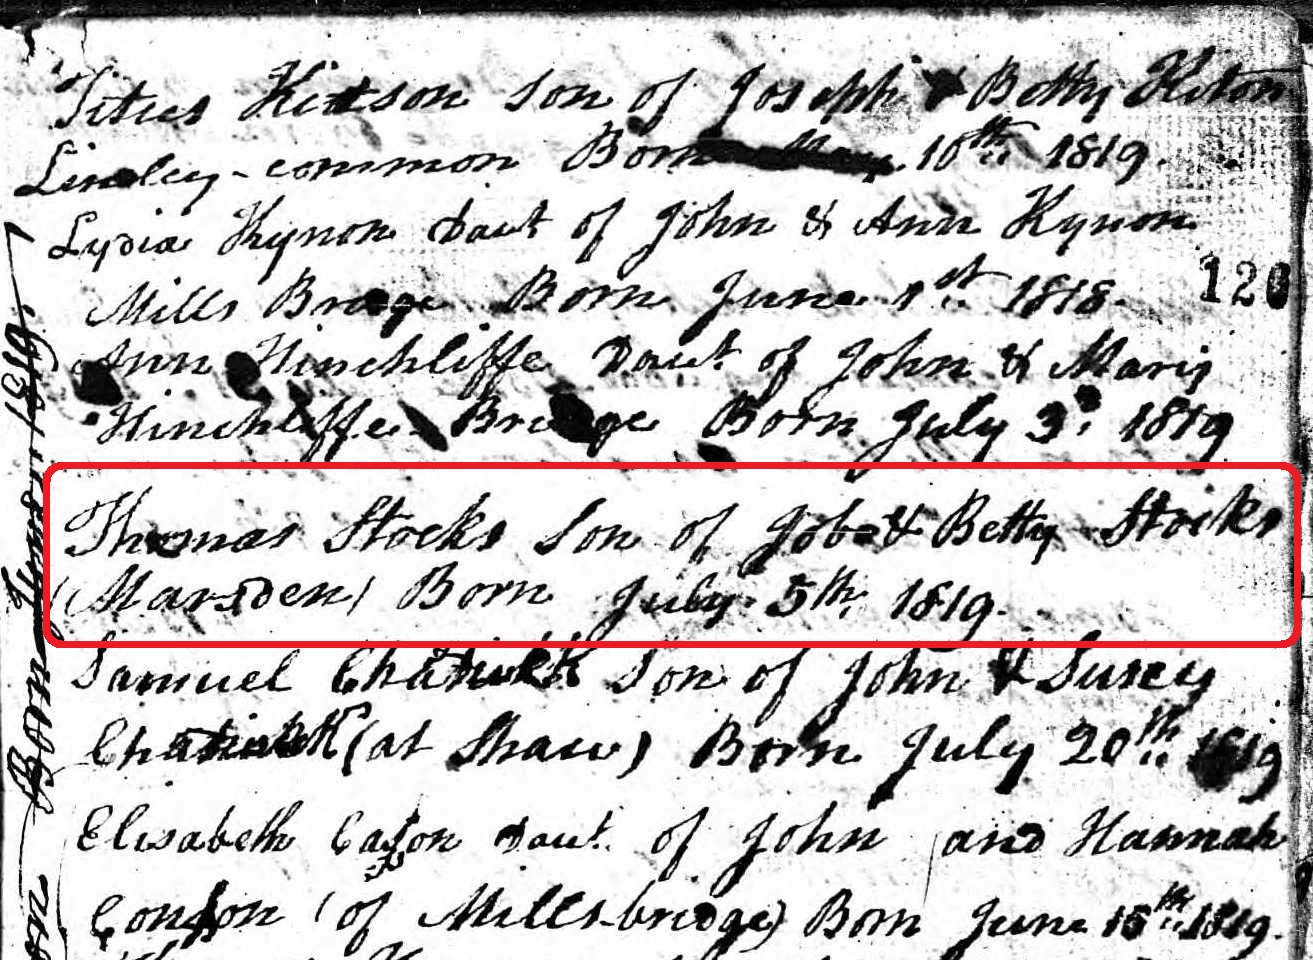 Titus Kitson Son of Joseph & Betty Kitson
Linsley-common Born May 10th 1819.
Lydia Kynon Daut of John & Ann Kynon
120
Mills Bridge Born June 1st 1818.
Ann Hinchliffe Daut. of John & Mary
Hinchliffe Bridge Born July 3d 1819
Thomas Stocks Son of Job & Betty Stocks
(Marsden) Born July 5th 1819.
Samuel Chadwick Son of John & Susey
Chadwick (at Shaw) Born July 20th 1819
Elisabeth Daut. of John and Hannah
(of Millsbridge) Born June 15th 1819.
Born 1819.